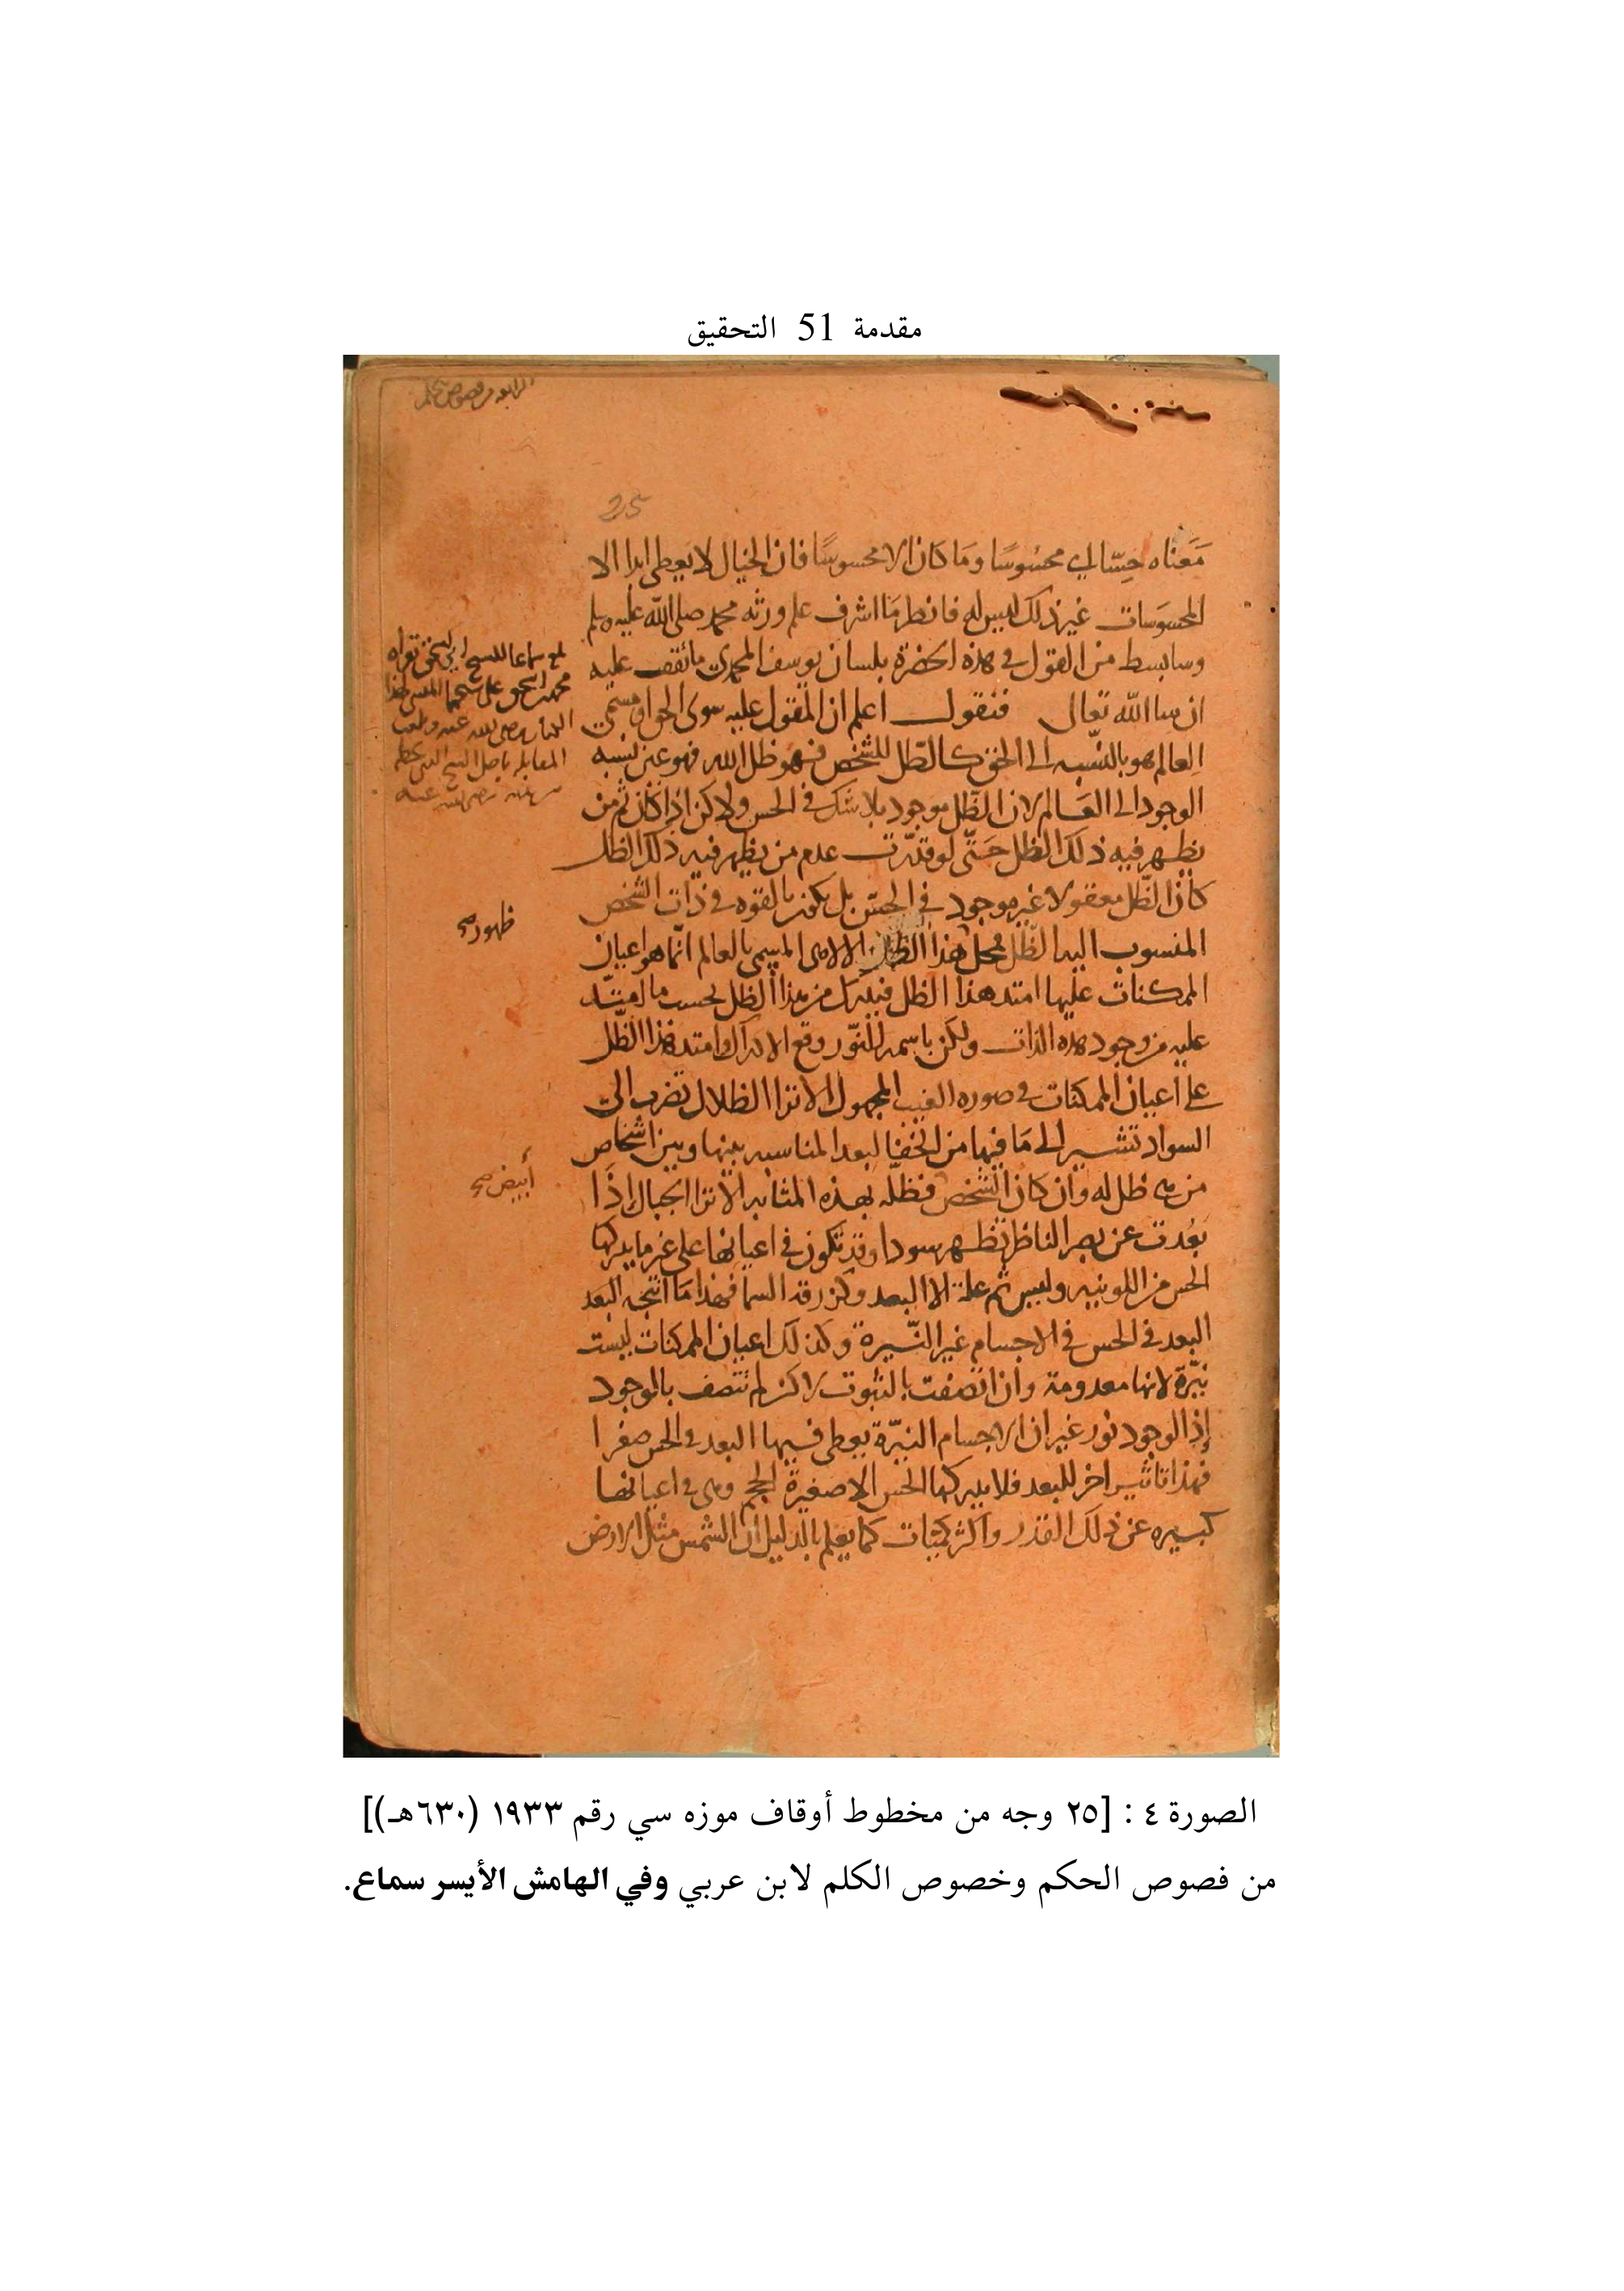 مقدمة 51 التحقيق
الرابعة من فصوص الحكم
25
مَعناه حِسّا اي محسُوسًا ومَا كان الا محسوسًا فان الخيال لا يعطى ابدا الا
المحسوَسات غير ذلك ليس له فانظر مَا اشرف علم ورثه محمد صلى الله عليه وسلم
وسابسط من القول فى هذه الحضرة بلسان يوسف المحمدى ما تقف عليه
ان شا الله تعالى فنقول اعلم ان المقول عليه سوى الحق او مسمى
العالم هو بالنّسبه الى الحق كالظّل للشخص فهو ظل الله فهو عين نسبه
الوجود الى العَالم لان الظّل موجود بلا شك فى الحس ولاكن اذا كان ثم من
يظهر فيه ذلك الظل حَتّى لو قدّرت عدم من يظهر فيه ذلك الظل
كان الظّل معقولا غير موجود فى الحسّ بل يكون بالقوه فى ذات الشخص
المنسوب اليه الظّل فمحل هذا الظل الالاهى المسمى بالعالم انّما هو اعيان
الممكنات عليها امتد هذا الظل فيدرك من هذا الظل بحسب ما امتدّ
عليه من وجود هذه الذات ولكن باسمه النّور وقع الادراك وامتد هذا الظّل
على اعيان الممكنات فى صوره الغيب المجهول الا ترا الظلال تضرب الى
السواد تشير الى مَا فيها من الخفا لبعد المناسبه بينها وبين اشخاص
من هى ظل له وان كان الشخص فظلّه بهذه المثابه الا ترا الجبال إذَا
بَعُدت عن بصر الناظر تظهر سودا وقد تكون فى اعيانها على غير ما يدركها
الحس من اللونيه وليس ثم علة الا البعد وكزرقه السما فهذا مَا انتجه البعد
البعد فى الحس فى الاجسام غير النّيرة وكذلك اعيان الممكنات ليست
نيّرة لانها معدومة وان اتصفت بالثبوت لاكن لم تتصف بالوجود
إذ الوجود نور غير ان الاجسام النيّرة يعطى فيها البعد فى الحس صغرا
فهذا تاثير اخر للبعد فلا يدركها الحس الا صغيرة الحجم وهى فى اعيانها
كبيره عن ذلك القدر واكثر كميّات كما يعلم بالدليل ان الشمس مثل الارض
محمد بن اسحق على شيخهما
رضى الله عنه
المقابله باصل الشيخ الذى بخط
رضى الله عنه
ظهور صح
أبيض صح
الصورة ٤ : [٢٥ وجه من مخطوط أوقاف موزه سي رقم ١٩٣٣ (٦٣٠هـ)]
من فصوص الحكم وخصوص الكلم لابن عربي وفي الهامش الأيسر سماع.